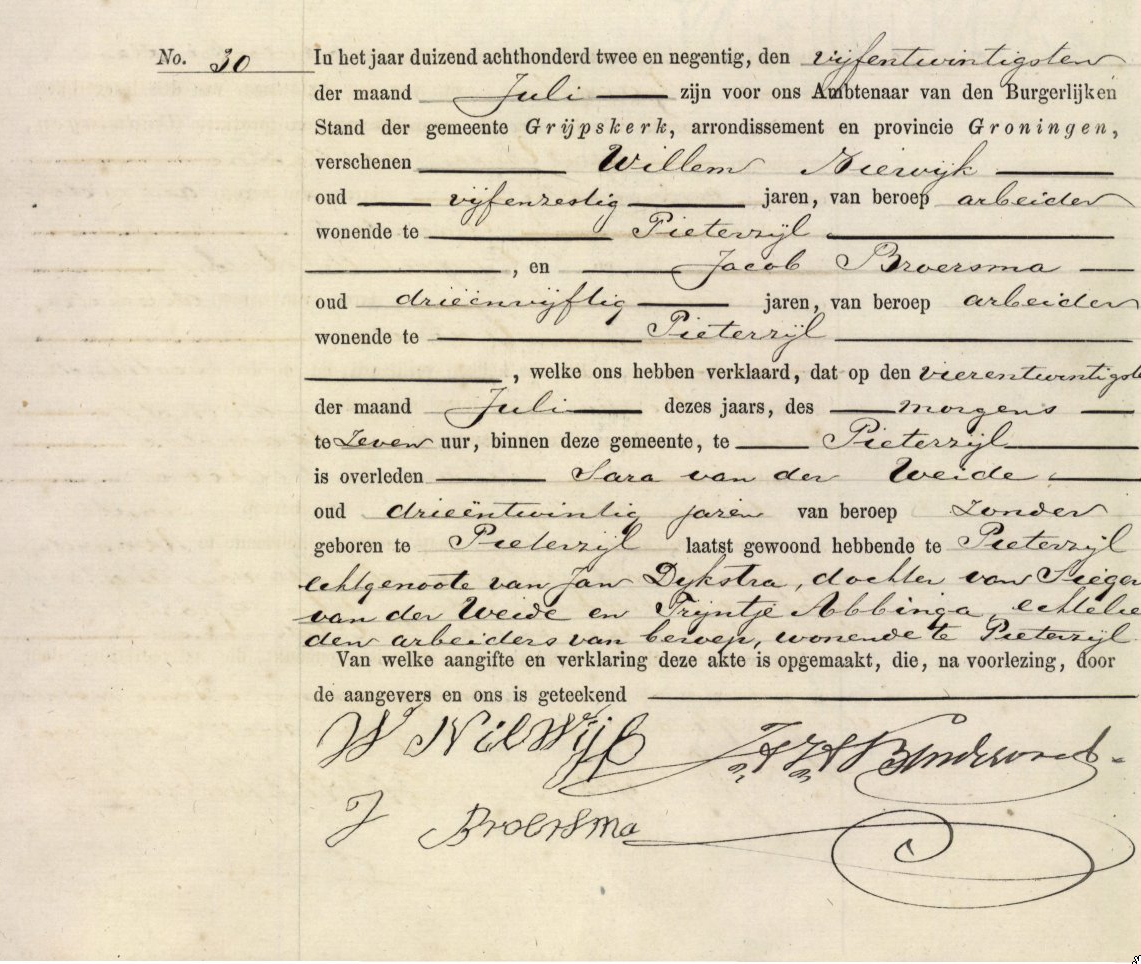 No. 30
In het jaar duizend achthonderd twee en negentig, den vijfentwintigsten
der maand Juli zijn voor ons Ambtenaar van den Burgerlijken
Stand der gemeente Grijpskerk, arrondissement en provincie Groningen,
verschenen Willem Niewijk
oud vijfenzestig jaren, van beroep arbeider
wonende te Pieterzijl
, en Jacob Broersma
oud drieënvijftig jaren, van beroep arbeider
wonende te Pieterzijl
, welke ons hebben verklaard, dat op den vierentwintigste
der maand Juli dezes jaars, des morgens
te Zeven uur, binnen deze gemeente, te Pieterzijl
is overleden Sara van der Weide
oud drieëntwintig jaren van beroep Zonder
geboren te Pieterzijl laatst gewoond hebbende te Pieterzijl
echtgenoote van Jan Dijkstra, dochter van Sieger
van der Weide en Trijntje Abbinga, echtelie
den arbeiders van beroep, wonende te Pieterzijl
Van welke aangifte en verklaring deze akte is opgemaakt, die, na voorlezing, door
de aangevers en ons is geteekend
W NieWijk
J Broersma